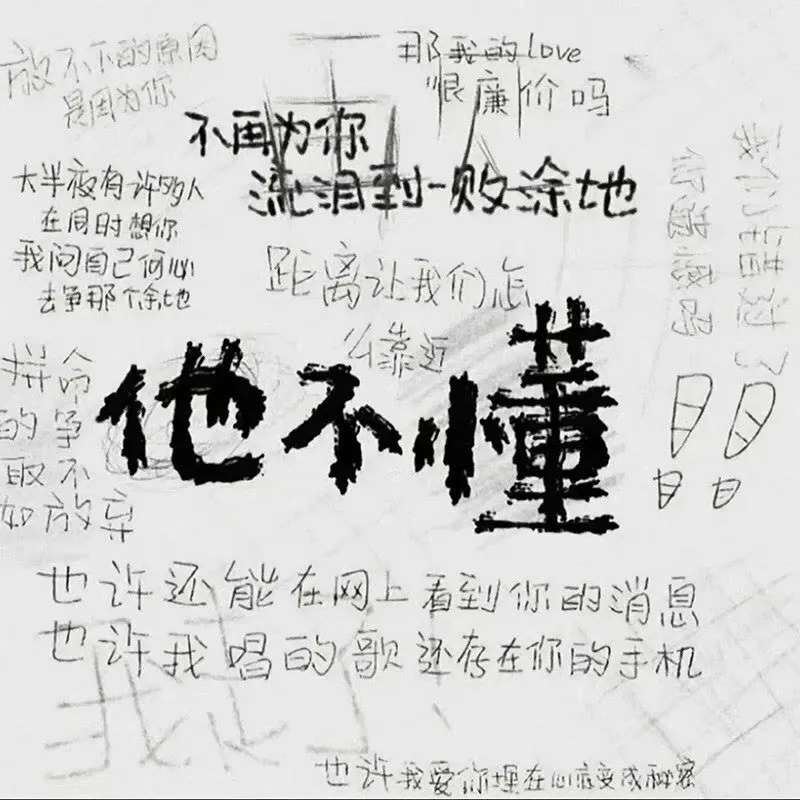 放不下的原因
是因为你
那我的love
很廉价吗
不再为你
流泪到一败涂地
大半夜有许多人
在同时想你
我问自己何必
去争那个余地
距离让我们怎
么靠近
我们错过了
你遗憾吗
他不懂
拼命
的争
取不
如放弃
也许还能在网上看到你的消息
也许我唱的歌还存在你的手机
我走了
也许我爱你埋在心底变成秘密